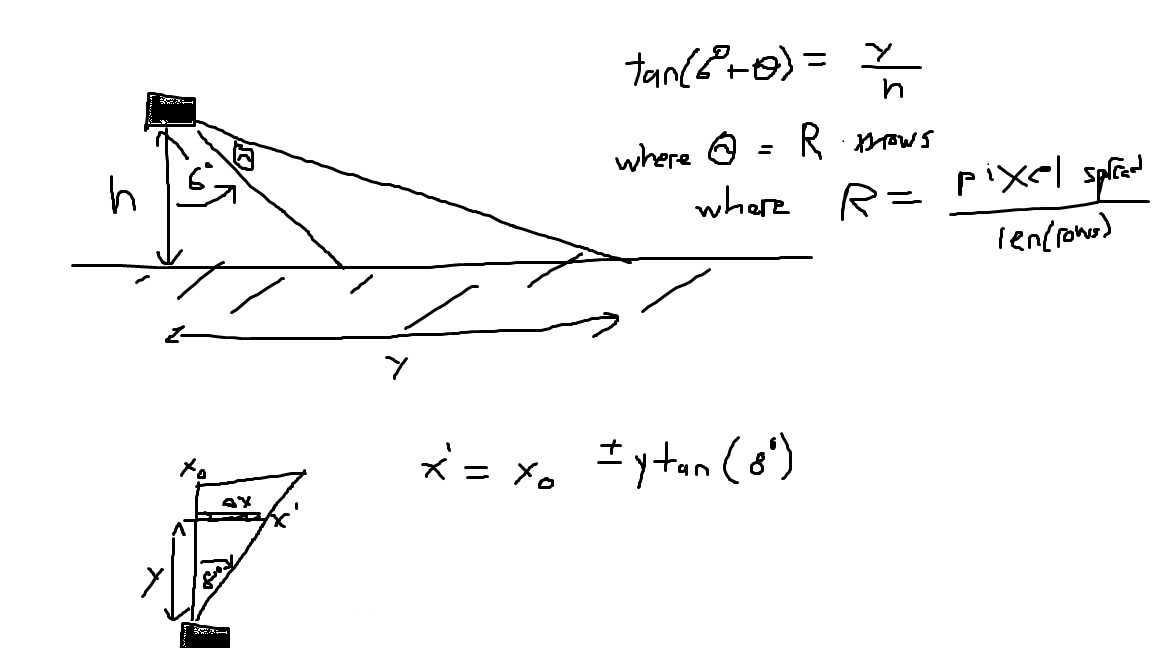 tan(6°+θ) = y/h
where θ = R · nrows
where R = pixel spread/len(rows)
h
6°
θ
y
x' = x₀ ± y tan(8°)
x₀
Δx
x'
y
8°